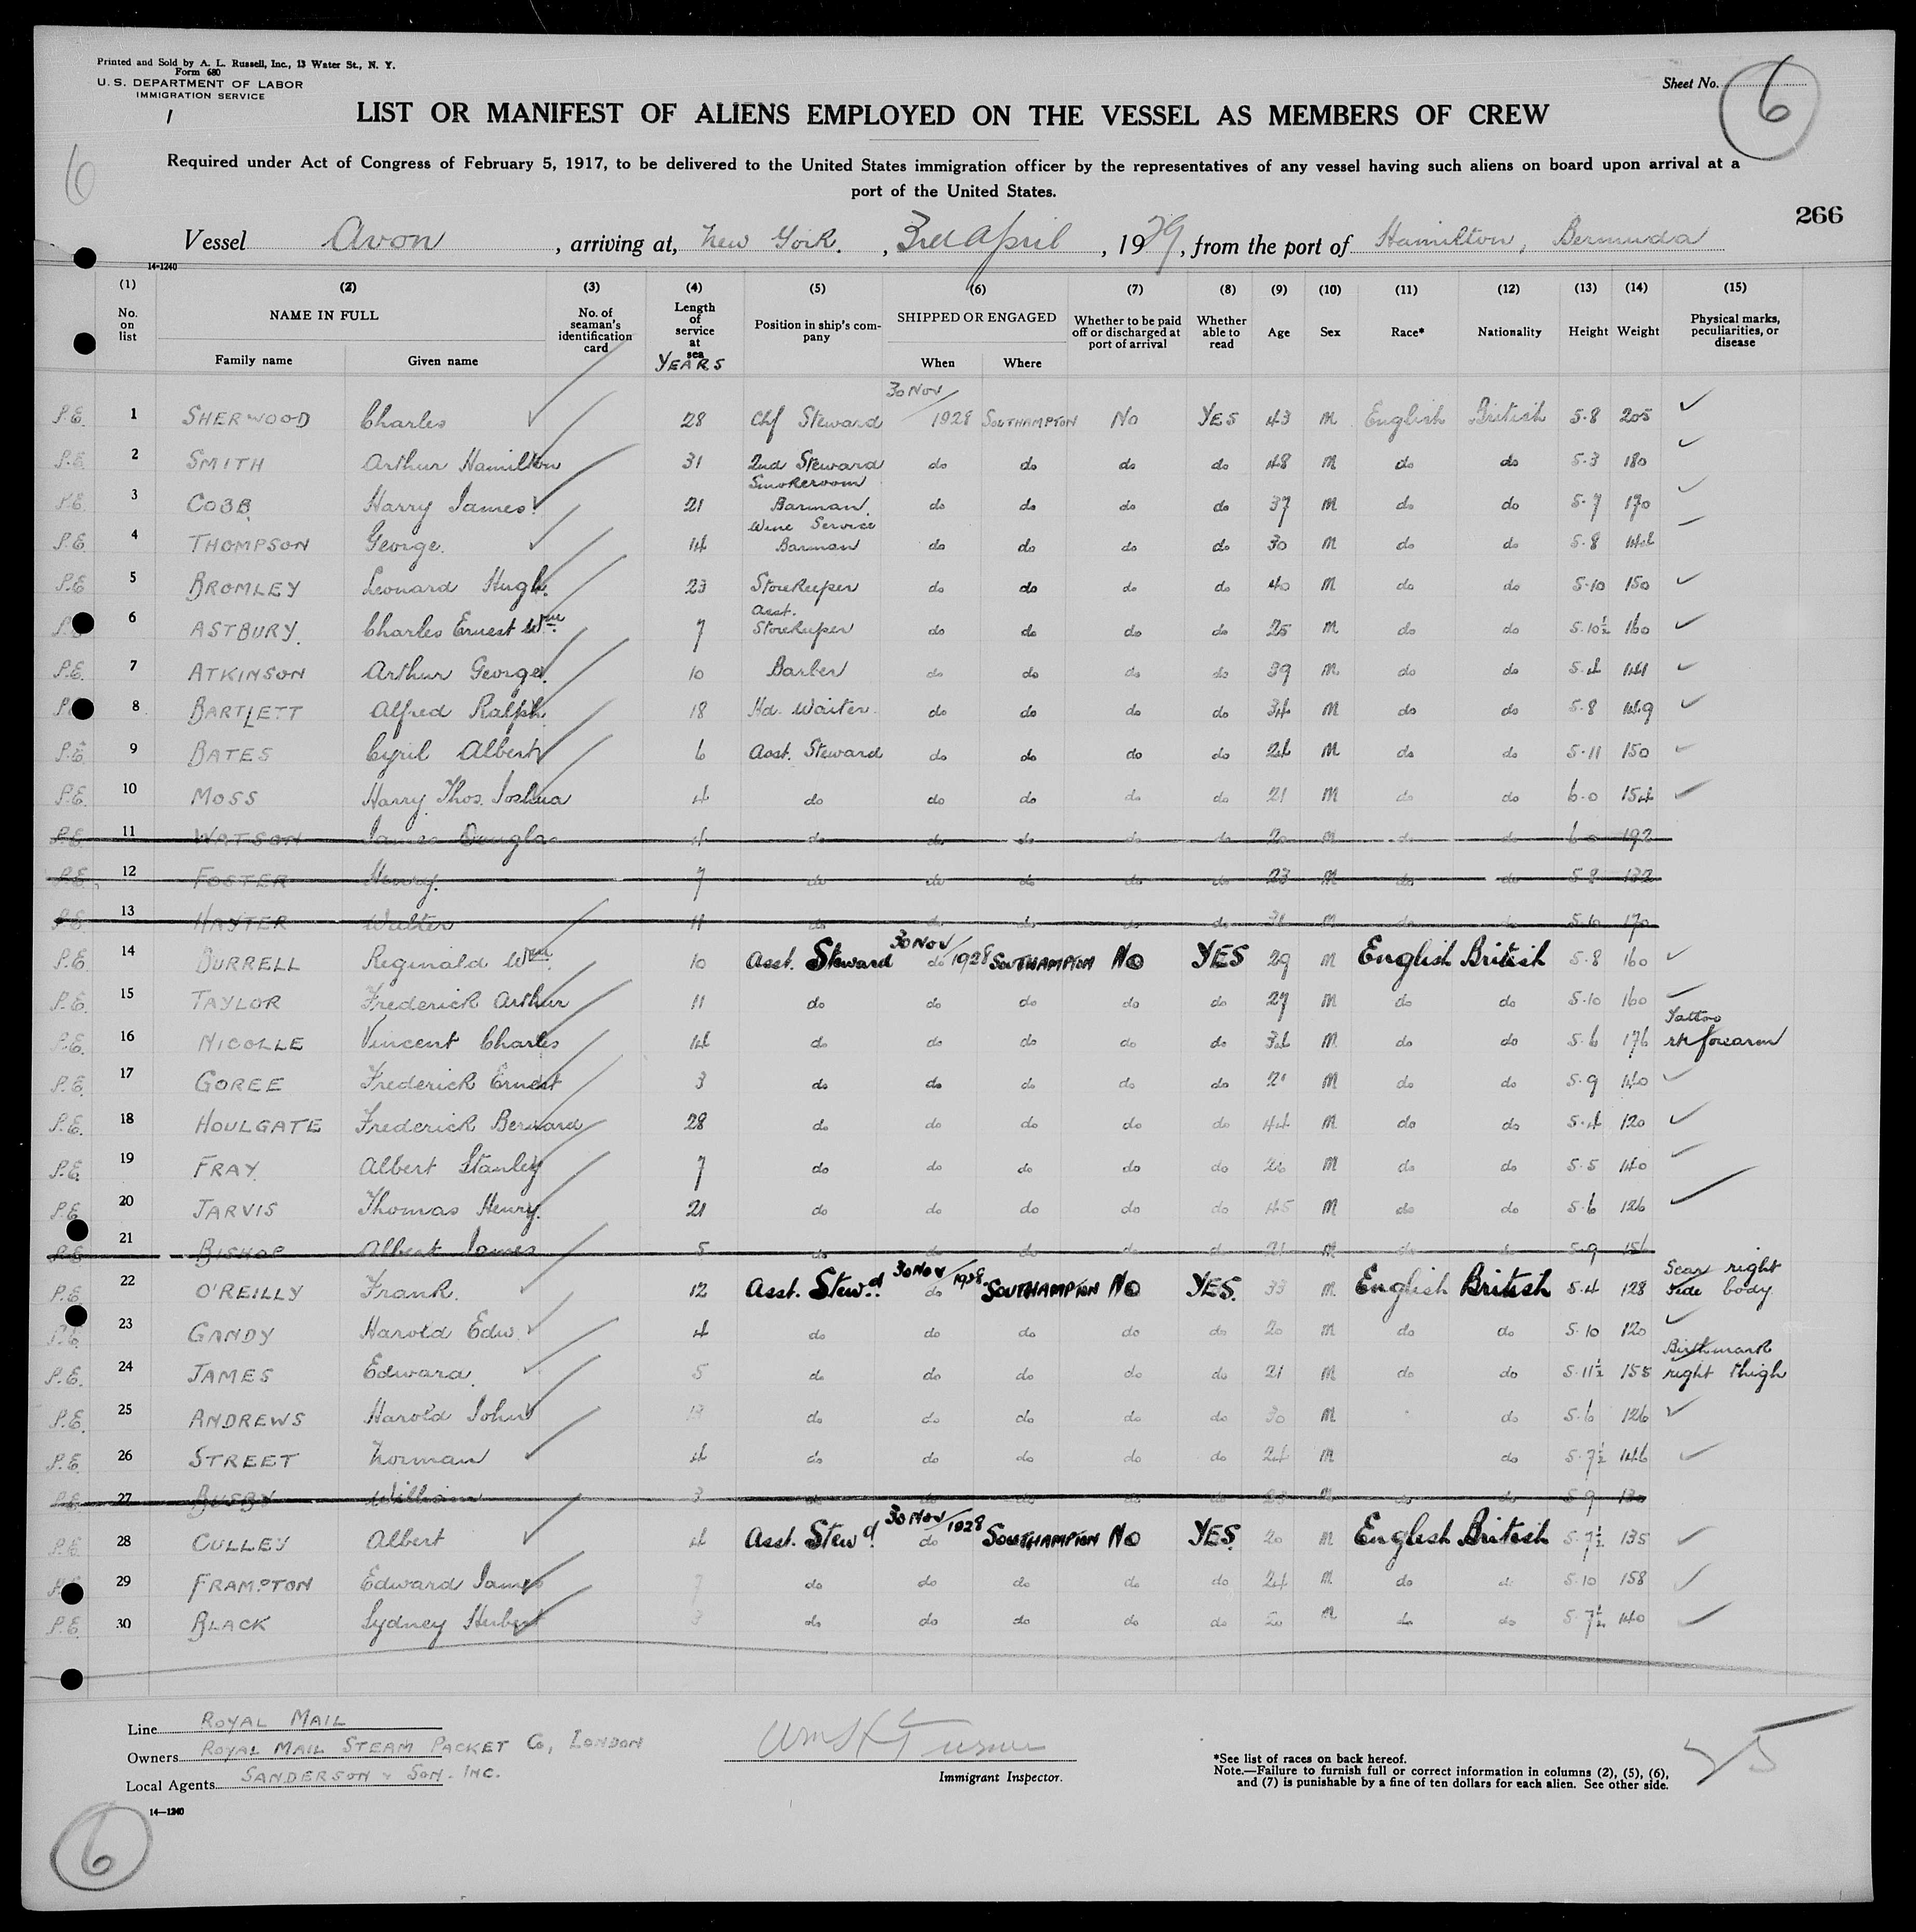 Printed and Sold by A. L. Russell, Inc., 13 Water St., N. Y.
Form 680
U. S. DEPARTMENT OF LABOR
IMMIGRATION SERVICE
Sheet No. 6
LIST OR MANIFEST OF ALIENS EMPLOYED ON THE VESSEL AS MEMBERS OF CREW
6
Required under Act of Congress of February 5, 1917, to be delivered to the United States immigration officer by the representatives of any vessel having such aliens on board upon arrival at a
port of the United States.
266
Vessel Avon, arriving at, New York., 3rd April, 1929, from the port of Hamilton, Bermuda
14-1240
(1) (2) (3) (4) (5) (6) (7) (8) (9) (10) (11) (12) (13) (14) (15)
No. on list NAME IN FULL Family name Given name No. of seaman's identification card Length of service at sea YEARS Position in ship's company SHIPPED OR ENGAGED When Where Whether to be paid off or discharged at port of arrival Whether able to read Age Sex Race* Nationality Height Weight Physical marks, peculiarities, or disease
P.E. 1 SHERWOOD Charles 28 Chf Steward 30 Nov/1928 SOUTHAMPTON No YES 43 M English British 5-8 205
P.E. 2 SMITH Arthur Hamilton 31 2nd Steward do do do do 48 M do do 5-3 180
P.E. 3 COBB Harry James 21 Smokeroom Barman do do do do 37 M do do 5-7 170
P.E. 4 THOMPSON George. 14 Wine Service Barman do do do do 30 M do do 5-8 142
P.E. 5 BROMLEY Leonard Hugh. 23 Storekeeper do do do do 40 M do do 5-10 150
6 ASTBURY. Charles Ernest Wm 7 Asst. Storekeeper do do do do 25 M do do 5-10½ 160
P.E. 7 ATKINSON Arthur George 10 Barber do do do do 39 M do do 5-4 141
8 BARTLETT Alfred Ralph 18 Hd. Waiter do do do do 34 M do do 5-8 149
P.E. 9 BATES Cyril Albert 6 Asst. Steward do do do do 24 M do do 5-11 150
P.E. 10 MOSS Harry Thos. Joshua 4 do do do do do 21 M do do 6-0 154
P.E. 11 WATSON James Douglas 4 do do do do do 20 M do do 6-0 192
P.E. 12 FOSTER Henry. 7 do do do do do 23 M do do 5-8 132
P.E. 13 HAYTER Walter 11 do do do do do 31 M do do 5-10 170
P.E. 14 BURRELL Reginald Wm. 10 Asst. Steward 30 Nov/1928 do SOUTHAMPTON No YES 29 M English British 5-8 160
P.E. 15 TAYLOR Frederick Arthur 11 do do do do do 27 M do do 5-10 160
P.E. 16 NICOLLE Vincent Charles 14 do do do do do 34 M do do 5-6 176 Tattoo rt forearm
P.E. 17 GOREE Frederick Ernest 3 do do do do do 21 M do do 5-9 140
P.E. 18 HOULGATE Frederick Bernard 28 do do do do do 44 M do do 5-4 120
P.E. 19 FRAY. Albert Stanley 7 do do do do do 26 M do do 5-5 140
P.E. 20 JARVIS Thomas Henry. 21 do do do do do 45 M do do 5-6 126
P.E. 21 BISHOP Albert James 5 do do do do do 21 M do do 5-9 156
P.E. 22 O'REILLY Frank. 12 Asst. Stewd. 30 Nov/1928 do SOUTHAMPTON No YES. 33 M English British 5-4 128 Scar right side body
P.E. 23 GANDY Harold Edw. 4 do do do do do 20 M do do 5-10 120
P.E. 24 JAMES Edward. 5 do do do do do 21 M do do 5-11½ 155 Birthmark right thigh
P.E. 25 ANDREWS Harold John do do do do do 30 M do 5-6 126
P.E. 26 STREET Norman 4 do do do do do 24 M do 5-7½ 146
P.E. 27 BUSBY William 3 do do do do do 23 M do do 5-9 130
P.E. 28 CULLEY Albert 4 Asst. Stewd. 30 Nov/1928 do SOUTHAMPTON No YES. 20 M English British 5-7½ 135
29 FRAMPTON Edward James 7 do do do do do 24 M do do 5-10 158
P.E. 30 BLACK Sydney Herbert 3 do do do do do 20 M do do 5-7½ 140
Line ROYAL MAIL
Owners ROYAL MAIL STEAM PACKET Co, LONDON
Local Agents SANDERSON & SON. INC.
Immigrant Inspector.
*See list of races on back hereof.
Note.—Failure to furnish full or correct information in columns (2), (5), (6),
and (7) is punishable by a fine of ten dollars for each alien. See other side.
25
14—1240
6